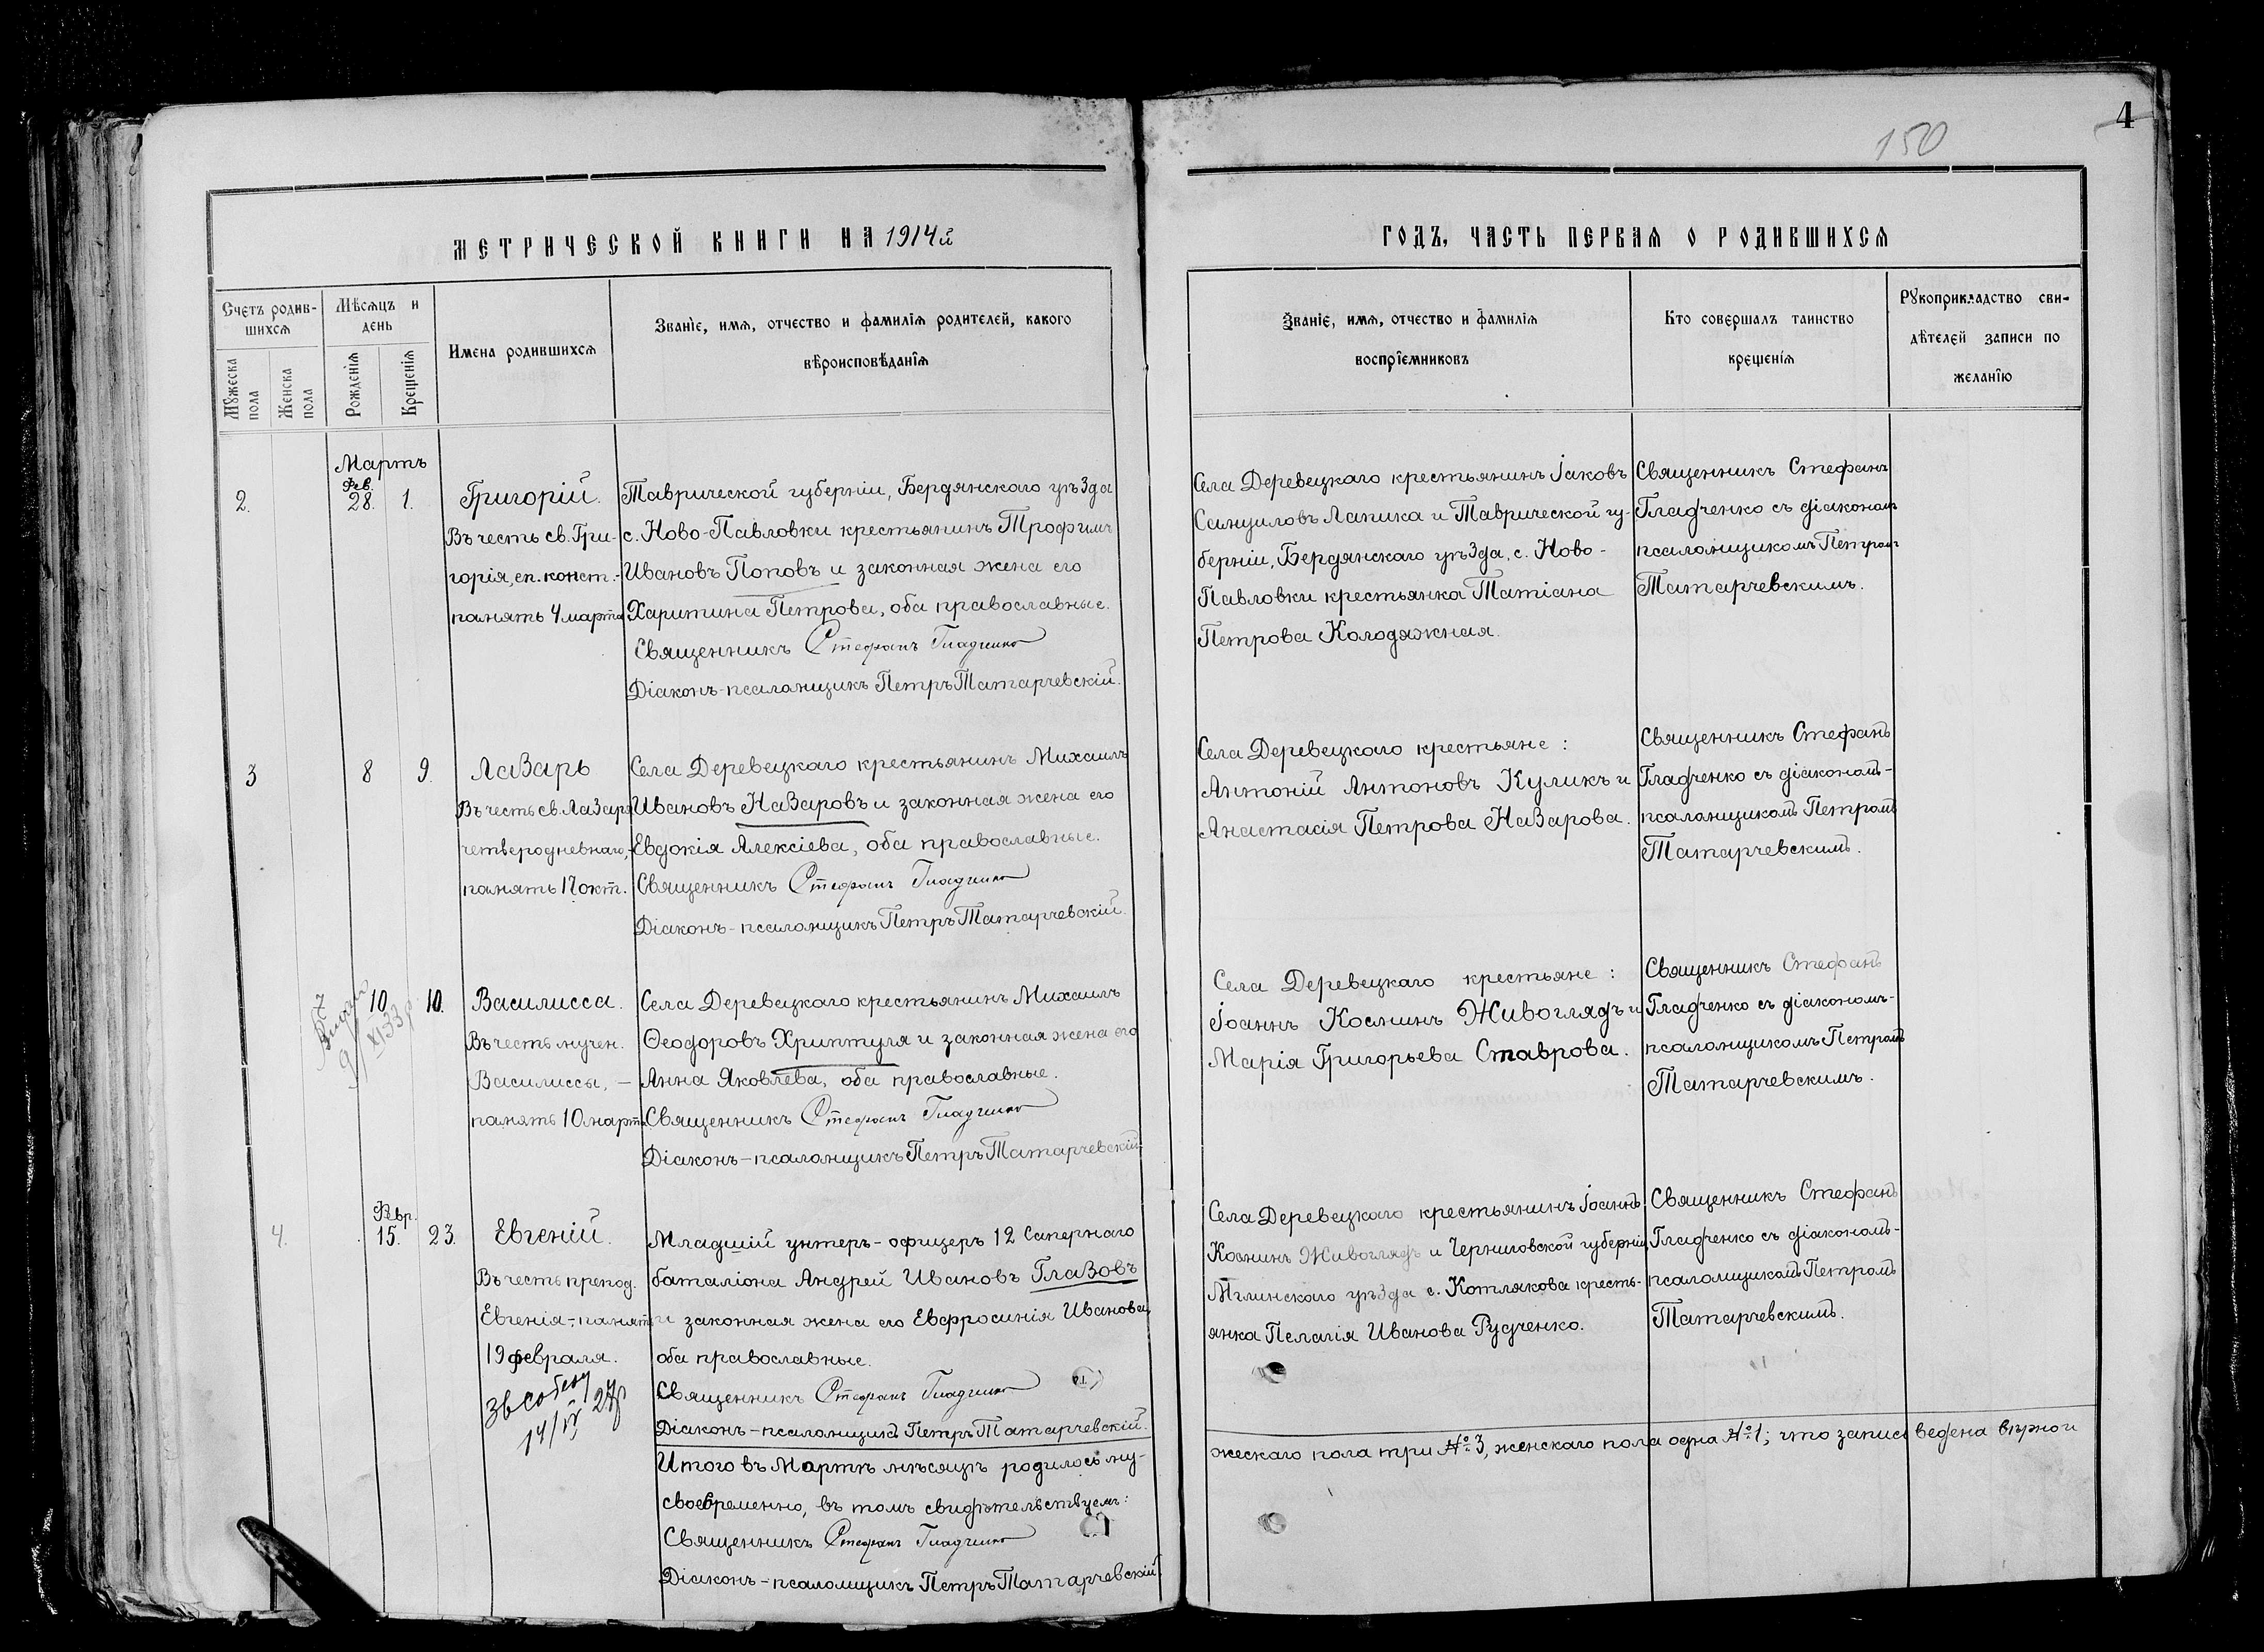 4
150
МЕТРИЧЕСКОЙ КНИГИ НА 1914й
ГОДЪ, ЧАСТЬ ПЕРВАЯ О РОДИВШИХСЯ
Счетъ родив-
шихся
Мужеска пола
Женска пола
Мѣсяцъ и
день
Рожденія
Крещенія
Имена родившихся
Званіе, имя, отчество и фамилія родителей, какого
вѣроисповѣданія
Званіе, имя, отчество и фамилія
воспріемниковъ
Кто совершалъ таинство
крещенія
Рукоприкладство сви-
дѣтелей записи по
желанію
Мартъ
2.
Фев.
28.
1.
Григорій.
Въ честь св. Гри-
горія, еп. конст.-
память 4 марта
Таврической губерніи, Бердянскаго уѣзда
с. Ново-Павловки крестьянинъ Трофимъ
Ивановъ Поповъ и законная жена его
Харитина Петрова, оба православные.
Священникъ Стефанъ Гладченко
Діаконъ-псаломщикъ Петръ Татарчевскій.
Села Деревецкаго крестьянинъ Іаковъ
Самуиловъ Лапика и Таврической гу-
берніи, Бердянскаго уѣзда, с. Ново-
Павловки крестьянка Татіана
Петрова Колодяжная.
Священникъ Стефанъ
Гладченко съ діакономъ
псаломщикомъ Петромъ
Татарчевскимъ.
3
8
9.
Лазарь
Въ честь св. Лазаря
четверодневнаго,-
память 17 окт.
Села Деревецкаго крестьянинъ Михаилъ
Ивановъ Назаровъ и законная жена его
Евдокія Алексіева, оба православные.
Священникъ Стефанъ Гладченко
Діаконъ-псаломщикъ Петръ Татарчевскій.
Села Деревецкаго крестьяне:
Антоній Антоновъ Куликъ и
Анастасія Петрова Назарова.
Священникъ Стефанъ
Гладченко съ діакономъ-
псаломщикомъ Петромъ
Татарчевскимъ.
10
10.
Василисса.
Въ честь мучен.
Василиссы, -
память 10 марта
Села Деревецкаго крестьянинъ Михаилъ
Ѳеодоровъ Хриптуля и законная жена его
Анна Яковлева, оба православные.
Священникъ Стефанъ Гладченко
Діаконъ-псаломщикъ Петръ Татарчевскій.
Села Деревецкаго крестьяне:
Іоаннъ Косминъ Живоглядъ и
Марія Григорьева Ставрова.
Священникъ Стефанъ
Гладченко съ діакономъ-
псаломщикомъ Петромъ
Татарчевскимъ.
4.
Февр.
15.
23.
Евгеній.
Въ честь препод.
Евгенія-память
19 февраля.
14/IV 27р
Младшій унтеръ-офицеръ 12 Сапернаго
баталіона Андрей Ивановъ Глазовъ
и законная жена его Евфросинія Иванова,
оба православные.
Священникъ Стефанъ Гладченко
Діаконъ-псаломщикъ Петръ Татарчевскій.
Села Деревецкаго крестьянинъ Іоаннъ
Косминъ Живоглядъ и Черниговской губерніи,
Мглинскаго уѣзда с. Котлякова кресть-
янка Пелагія Иванова Рудченко.
Священникъ Стефанъ
Гладченко съ діакономъ-
псаломщикомъ Петромъ
Татарчевскимъ.
Итого въ Мартѣ мѣсяцѣ родилось му-
жескаго пола три №3, женскаго пола одна №1; что запись ведена вѣрно и
своевременно, въ томъ свидѣтельствуемъ:
Священникъ Стефанъ Гладченко
Діаконъ-псаломщикъ Петръ Татарчевскій.